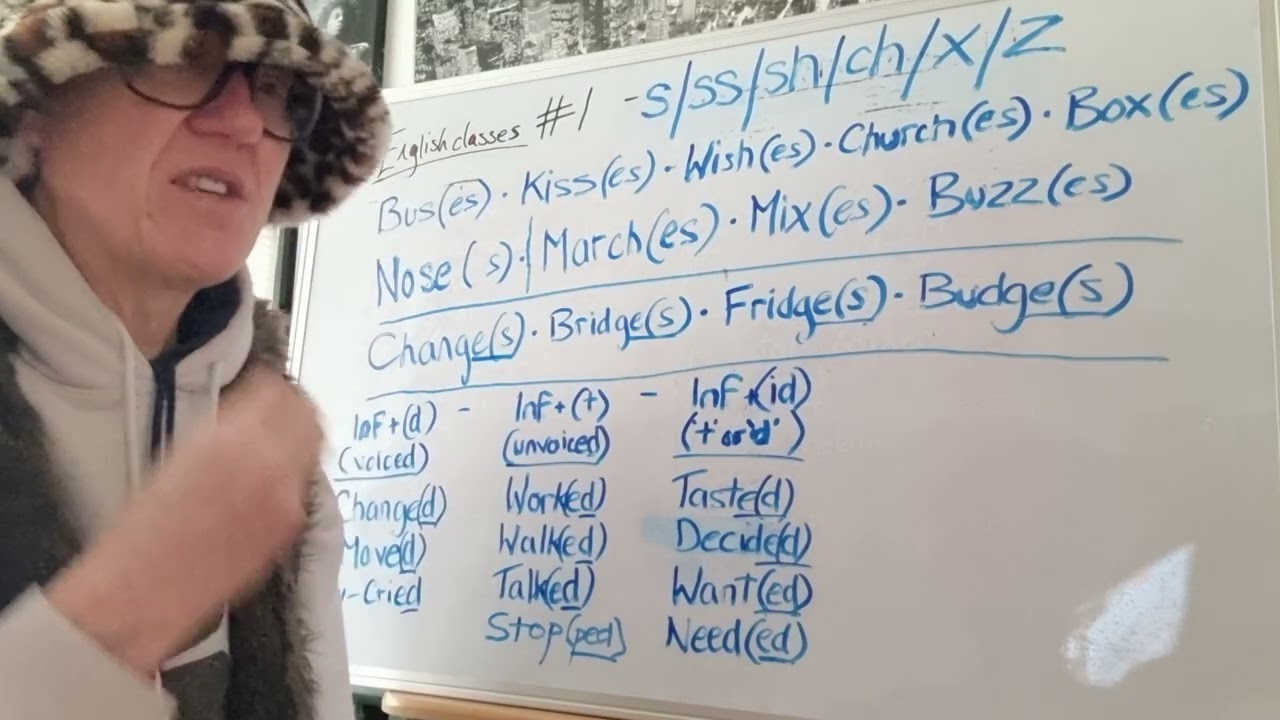 English classes #1 -s/ss/sh/ch/x/z
Bus(es) · Kiss(es) · Wish(es) · Church(es) · Box(es)
Nose( s) · | March(es) · Mix(es) · Buzz(es)
Change(s) · Bridge(s) · Fridge(s) · Budge(s)
Inf+(d) - Inf+(t) - Inf+(id)
(voiced) (unvoiced) ('t' or 'd')
Change(d) Work(ed) Taste(d)
Move(d) Walk(ed) Decide(d)
-Cried Talk(ed) Want(ed)
Stop(ped) Need(ed)